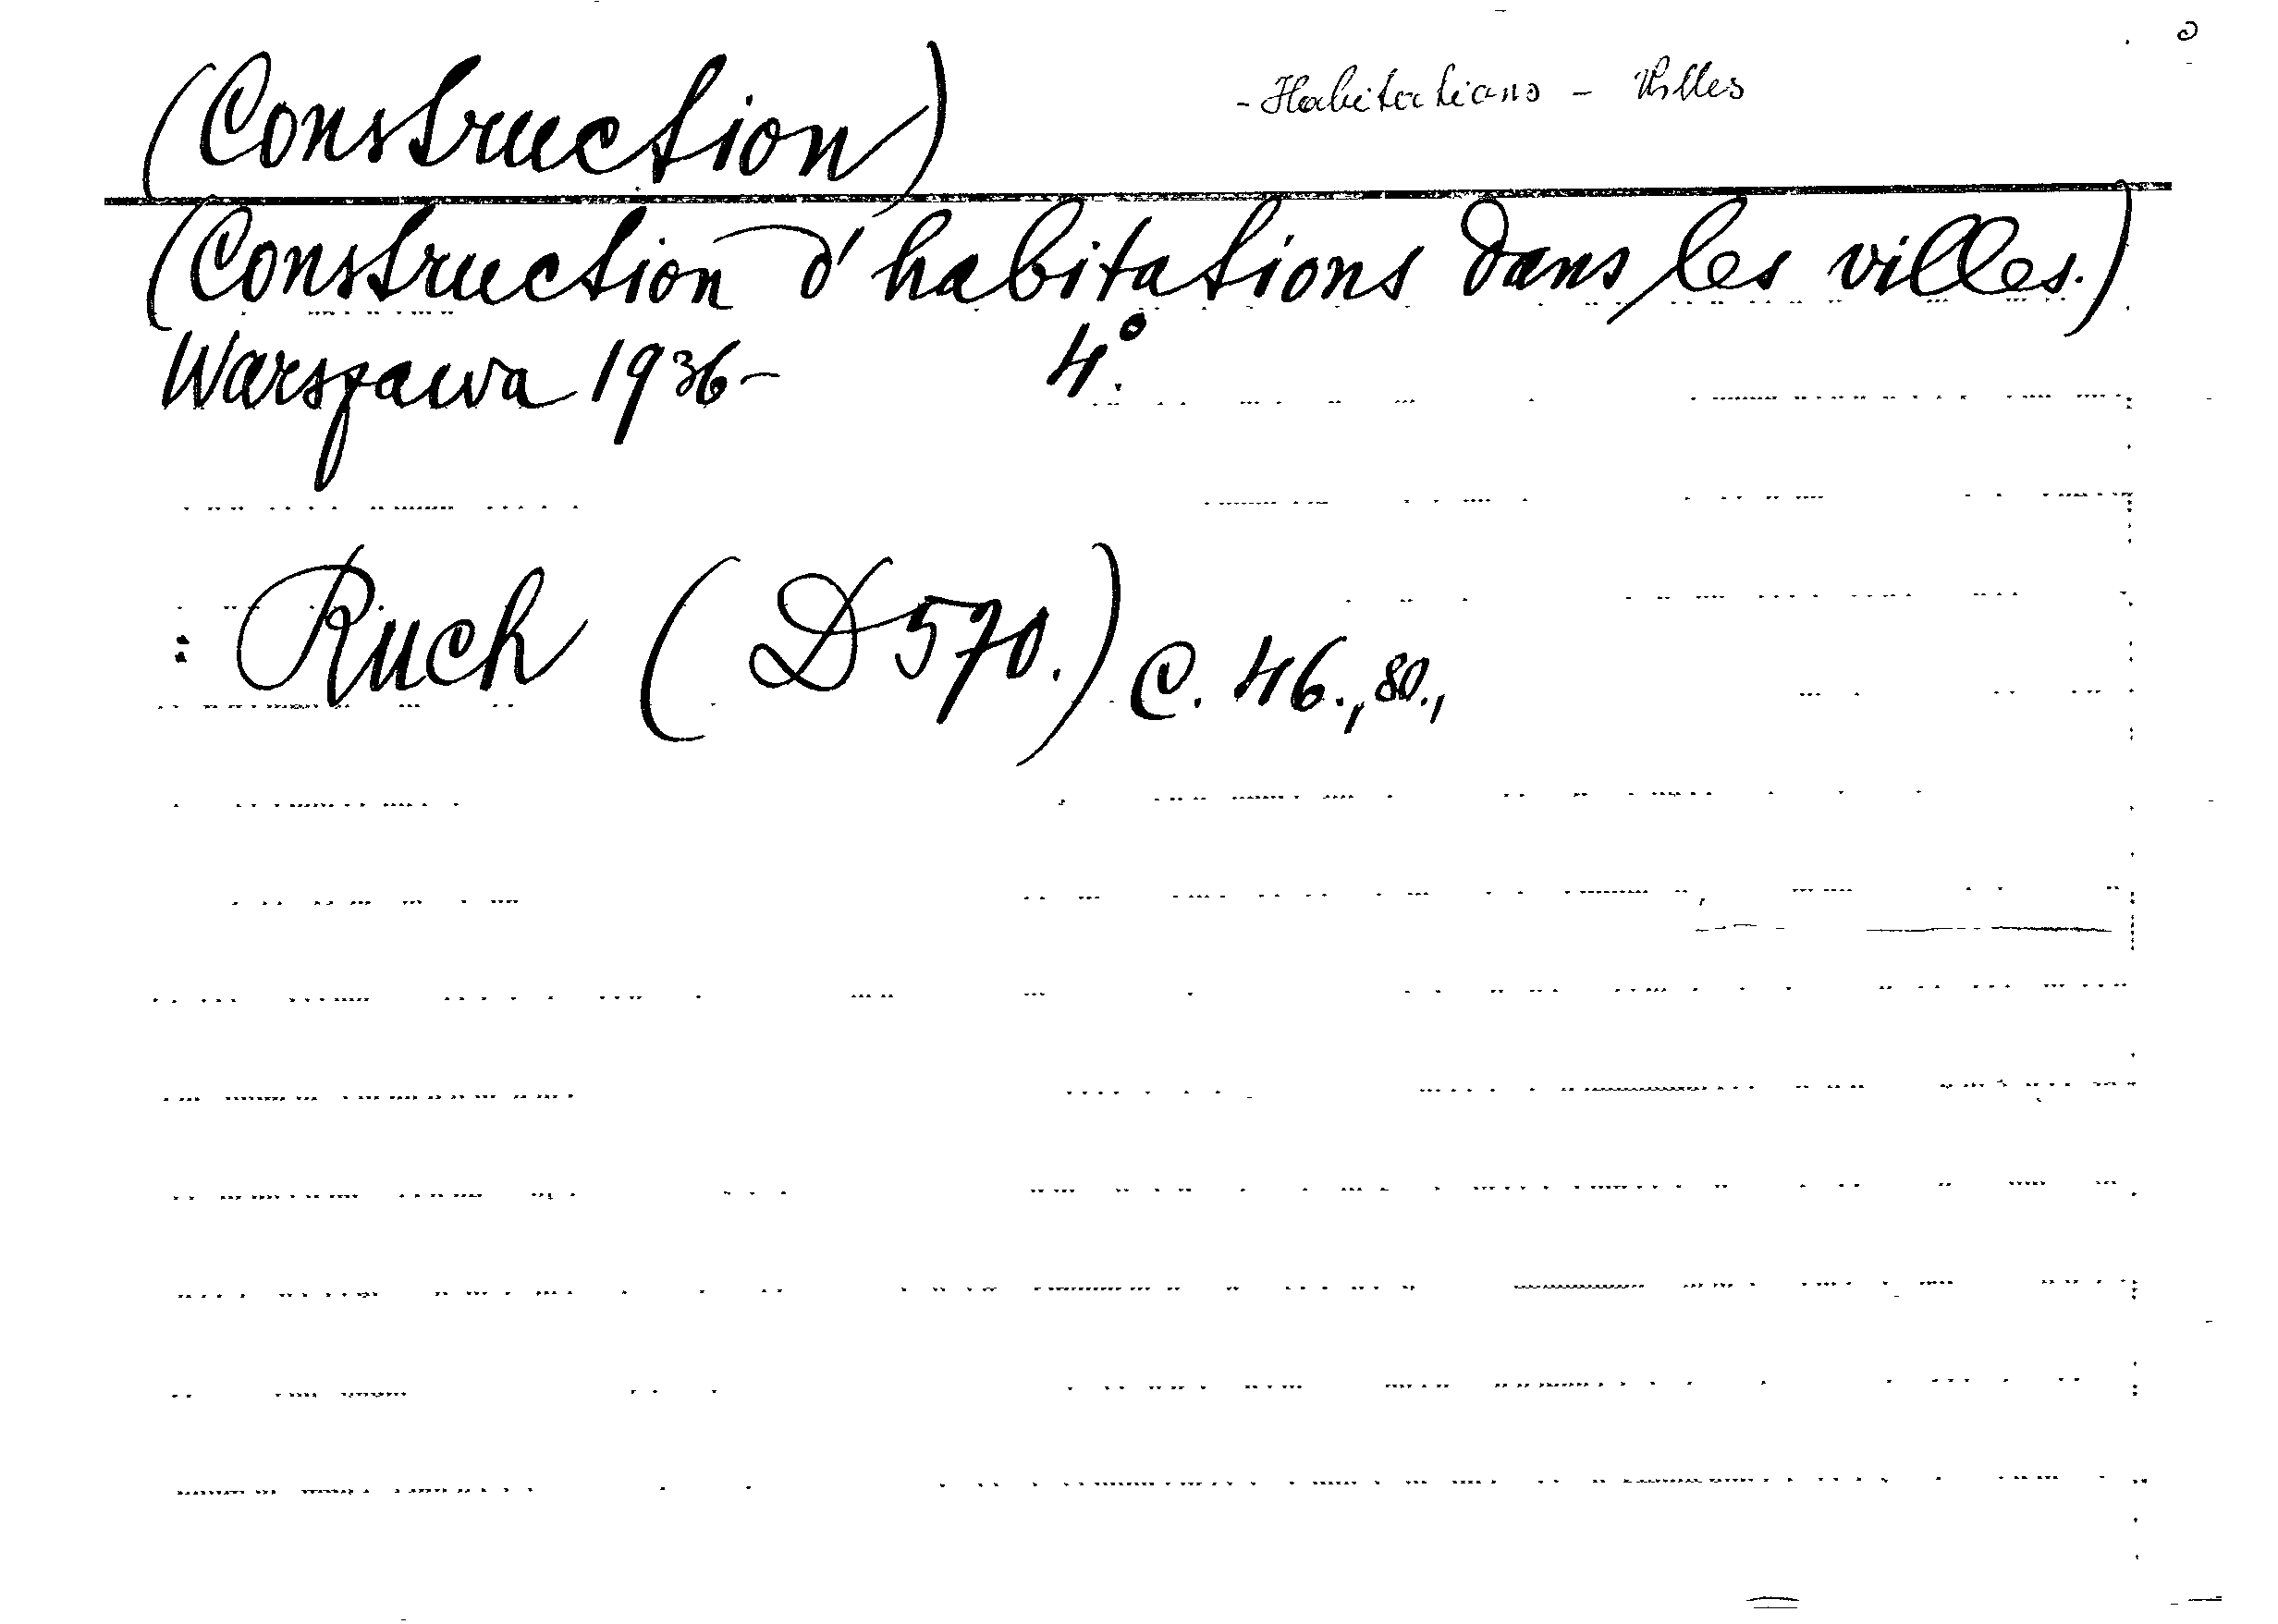 (Construction) - Habitations - Villes
(Construction d'habitations dans les villes.)
Warszawa 1936- 4°.
: Ruch (D570.) C. 46., 80.,